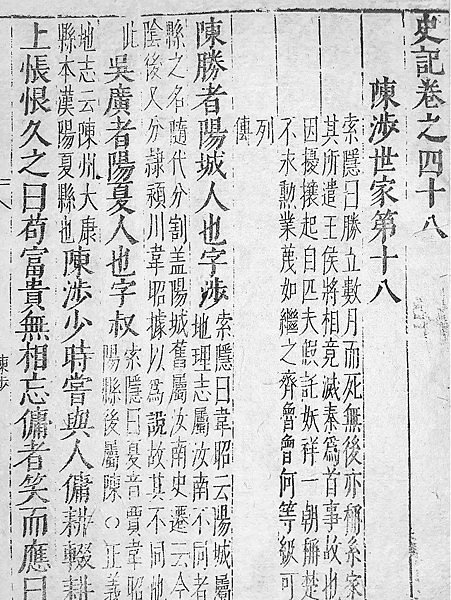 史記卷之四十八
陳涉世家第十八
索隱曰勝立數月而死無後亦稱系家
其所遣王侯將相竟滅秦爲首事故也
因擾攘起自匹夫假託妖祥一朝稱楚
不永勳業蔑如繼之齊魯曾何等級可
列
傳
陳勝者陽城人也字涉
索隱曰韋昭云陽城屬
地理志屬汝南不同者
縣之名隨代分割蓋陽城舊屬汝南史遷云今
陰後又分隸潁川韋昭據以爲說故其不同他
此
吳廣者陽夏人也字叔
索隱曰夏音賈韋昭
陽縣後屬陳○正義
地志云陳州大康
縣本漢陽夏縣也
陳涉少時嘗與人傭耕輟耕
上悵恨久之曰苟富貴無相忘傭者笑而應曰
陳涉